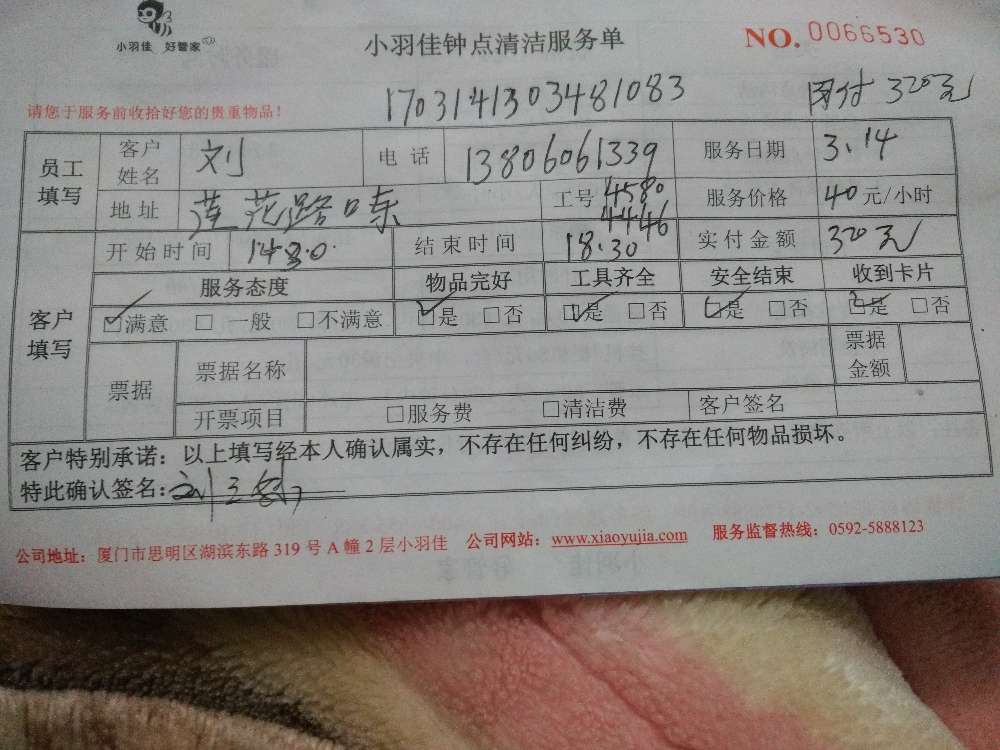 小羽佳 好管家
小羽佳钟点清洁服务单
NO. 0066530
请您于服务前收拾好您的贵重物品！
1703141303481083
付 320元
员工填写 客户姓名 刘 电话 13806061339 服务日期 3.14
地址 莲花路口东 工号 4580 4446 服务价格 40元/小时
客户填写 开始时间 14:30 结束时间 18:30 实付金额 320元
服务态度 物品完好 工具齐全 安全结束 收到卡片
☑满意 □ 一般 □不满意 ☑是 □否 ☑是 □否 ☑是 □否 ☑是 □否
票据 票据名称 票据金额
开票项目 □服务费 □清洁费 客户签名
客户特别承诺：以上填写经本人确认属实，不存在任何纠纷，不存在任何物品损坏。
特此确认签名：刘
公司地址：厦门市思明区湖滨东路 319 号 A 幢 2 层小羽佳 公司网站：www.xiaoyujia.com 服务监督热线：0592-5888123